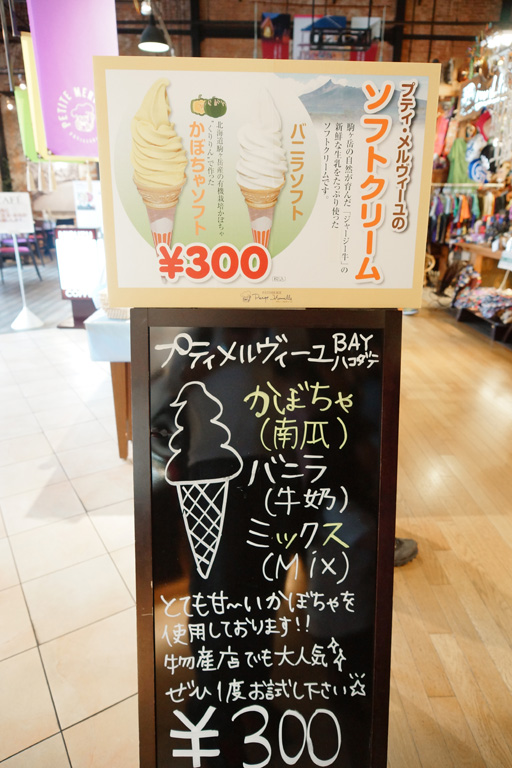 プティ・メルヴィーユの
ソフトクリーム
駒ヶ岳の自然が育んだ「ジャージー牛」の
新鮮な生乳をたっぷり使った
ソフトクリームです。
バニラソフト
北海道駒ヶ岳産の有機栽培かぼちゃ
「くりりん」で作った
かぼちゃソフト
¥300
(税込)
プティメルヴィーユ BAY
ハコダテ
かぼちゃ
(南瓜)
バニラ
(牛奶)
ミックス
(Mix)
とても甘〜いかぼちゃを
使用しております!!
物産店でも大人気☆
ぜひ1度お試し下さい☆
¥300
PETITE MER